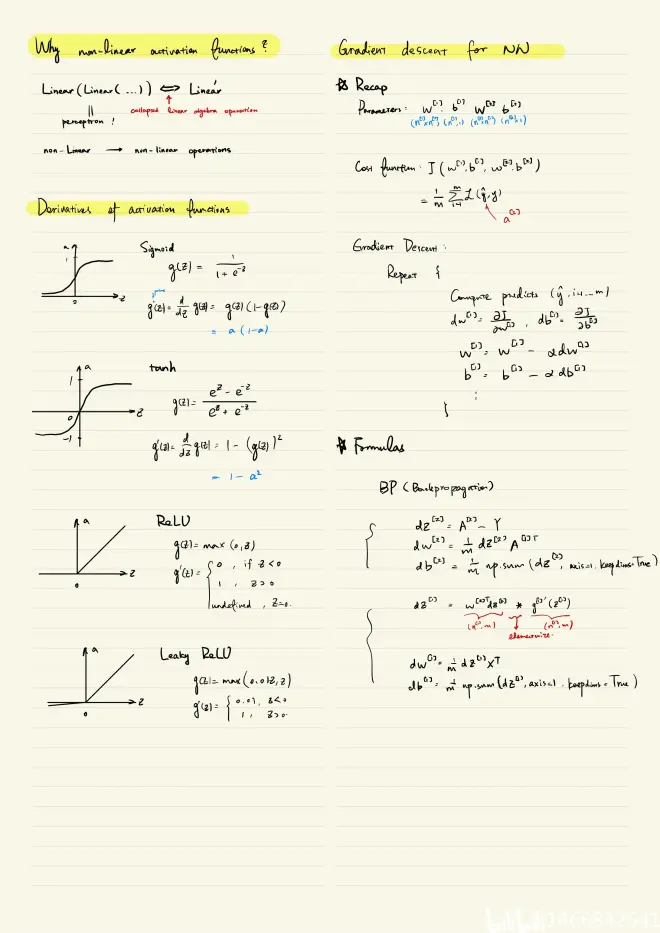 Why non-linear activation functions?
Linear (Linear ( ... )) ⟺ Linear
collapsed linear algebra operation
perceptron !
non-Linear → non-linear operations
Derivatives of activation functions
a
1
0
z
Sigmoid
g(z) = 1 / (1 + e^-z)
prime
g'(z) = d/dz g(z) = g(z) (1-g(z))
= a (1-a)
a
1
0
z
-1
tanh
g(z) = (e^z - e^-z) / (e^z + e^-z)
g'(z) = d/dz g(z) = 1 - (g(z))^2
= 1 - a^2
a
0
z
ReLU
g(z) = max (0, z)
g'(z) = { 0 , if z < 0
1 , z > 0
undefined , z=0.
a
0
z
Leaky ReLU
g(z) = max (0.01z, z)
g'(z) = { 0.01, z<0
1, z>0
Gradient descent for NN
☆ Recap
Parameters: w^[1] b^[1] w^[2] b^[2]
Cost function: J (w^[1], b^[1], w^[2], b^[2])
= 1/m Σ_{i=1}^m L (ŷ, y)
a^[2]
Gradient Descent:
Repeat {
Compute predicts (ŷ, i=1...m)
dw^[1] = ∂J/∂w^[1] , db^[1] = ∂J/∂b^[1]
w^[1] = w^[1] - α dw^[1]
b^[1] = b^[1] - α db^[1]
⋮
}
☆ Formulas
BP (Backpropagation)
dz^[2] = A^[2] - Y
dw^[2] = 1/m dz^[2] A^[1]T
db^[2] = 1/m np.sum (dz^[2], axis=1, keepdims=True)
dz^[1] = w^[2]T dz^[2] * g^[1]' (z^[1])
(n^[1], m) elementwise. (n^[1], m)
dw^[1] = 1/m dz^[1] X^T
db^[1] = 1/m np.sum (dz^[1], axis=1, keepdims=True)